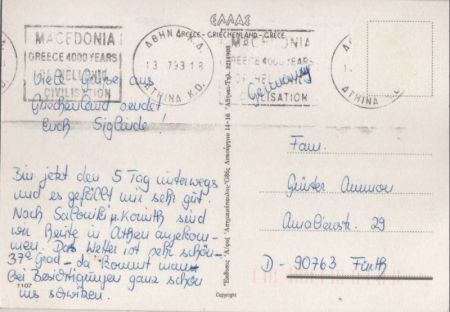 ΕΛΛΑΣ
GREECE - GRIECHENLAND - GRECE
MACEDONIA
GREECE 4000 YEARS
OF HELLENIC
CIVILISATION
ΑΘΗΝΑ Κ.Δ.
13 7 93 18
ATHINA K.D.
MACEDONIA
GREECE 4000 YEARS
OF HELLENIC
CIVILISATION
ATHINA K.D.
Viele Grüße aus
Griechenland sendet
Euch Siglinde!
Germany
Bin jetzt den 5 Tag unterwegs
und es gefällt mir sehr gut.
Nach Saloniki u. Korinth sind
wir heute in Athen angekom-
men. Das Wetter ist sehr schön -
37° Grad - da kommt man
bei Besichtigungen ganz schön
ins schwitzen.
1107
Copyright
Fam.
Günter Ammon
Amalienstr. 29
D- 90763 Fürth